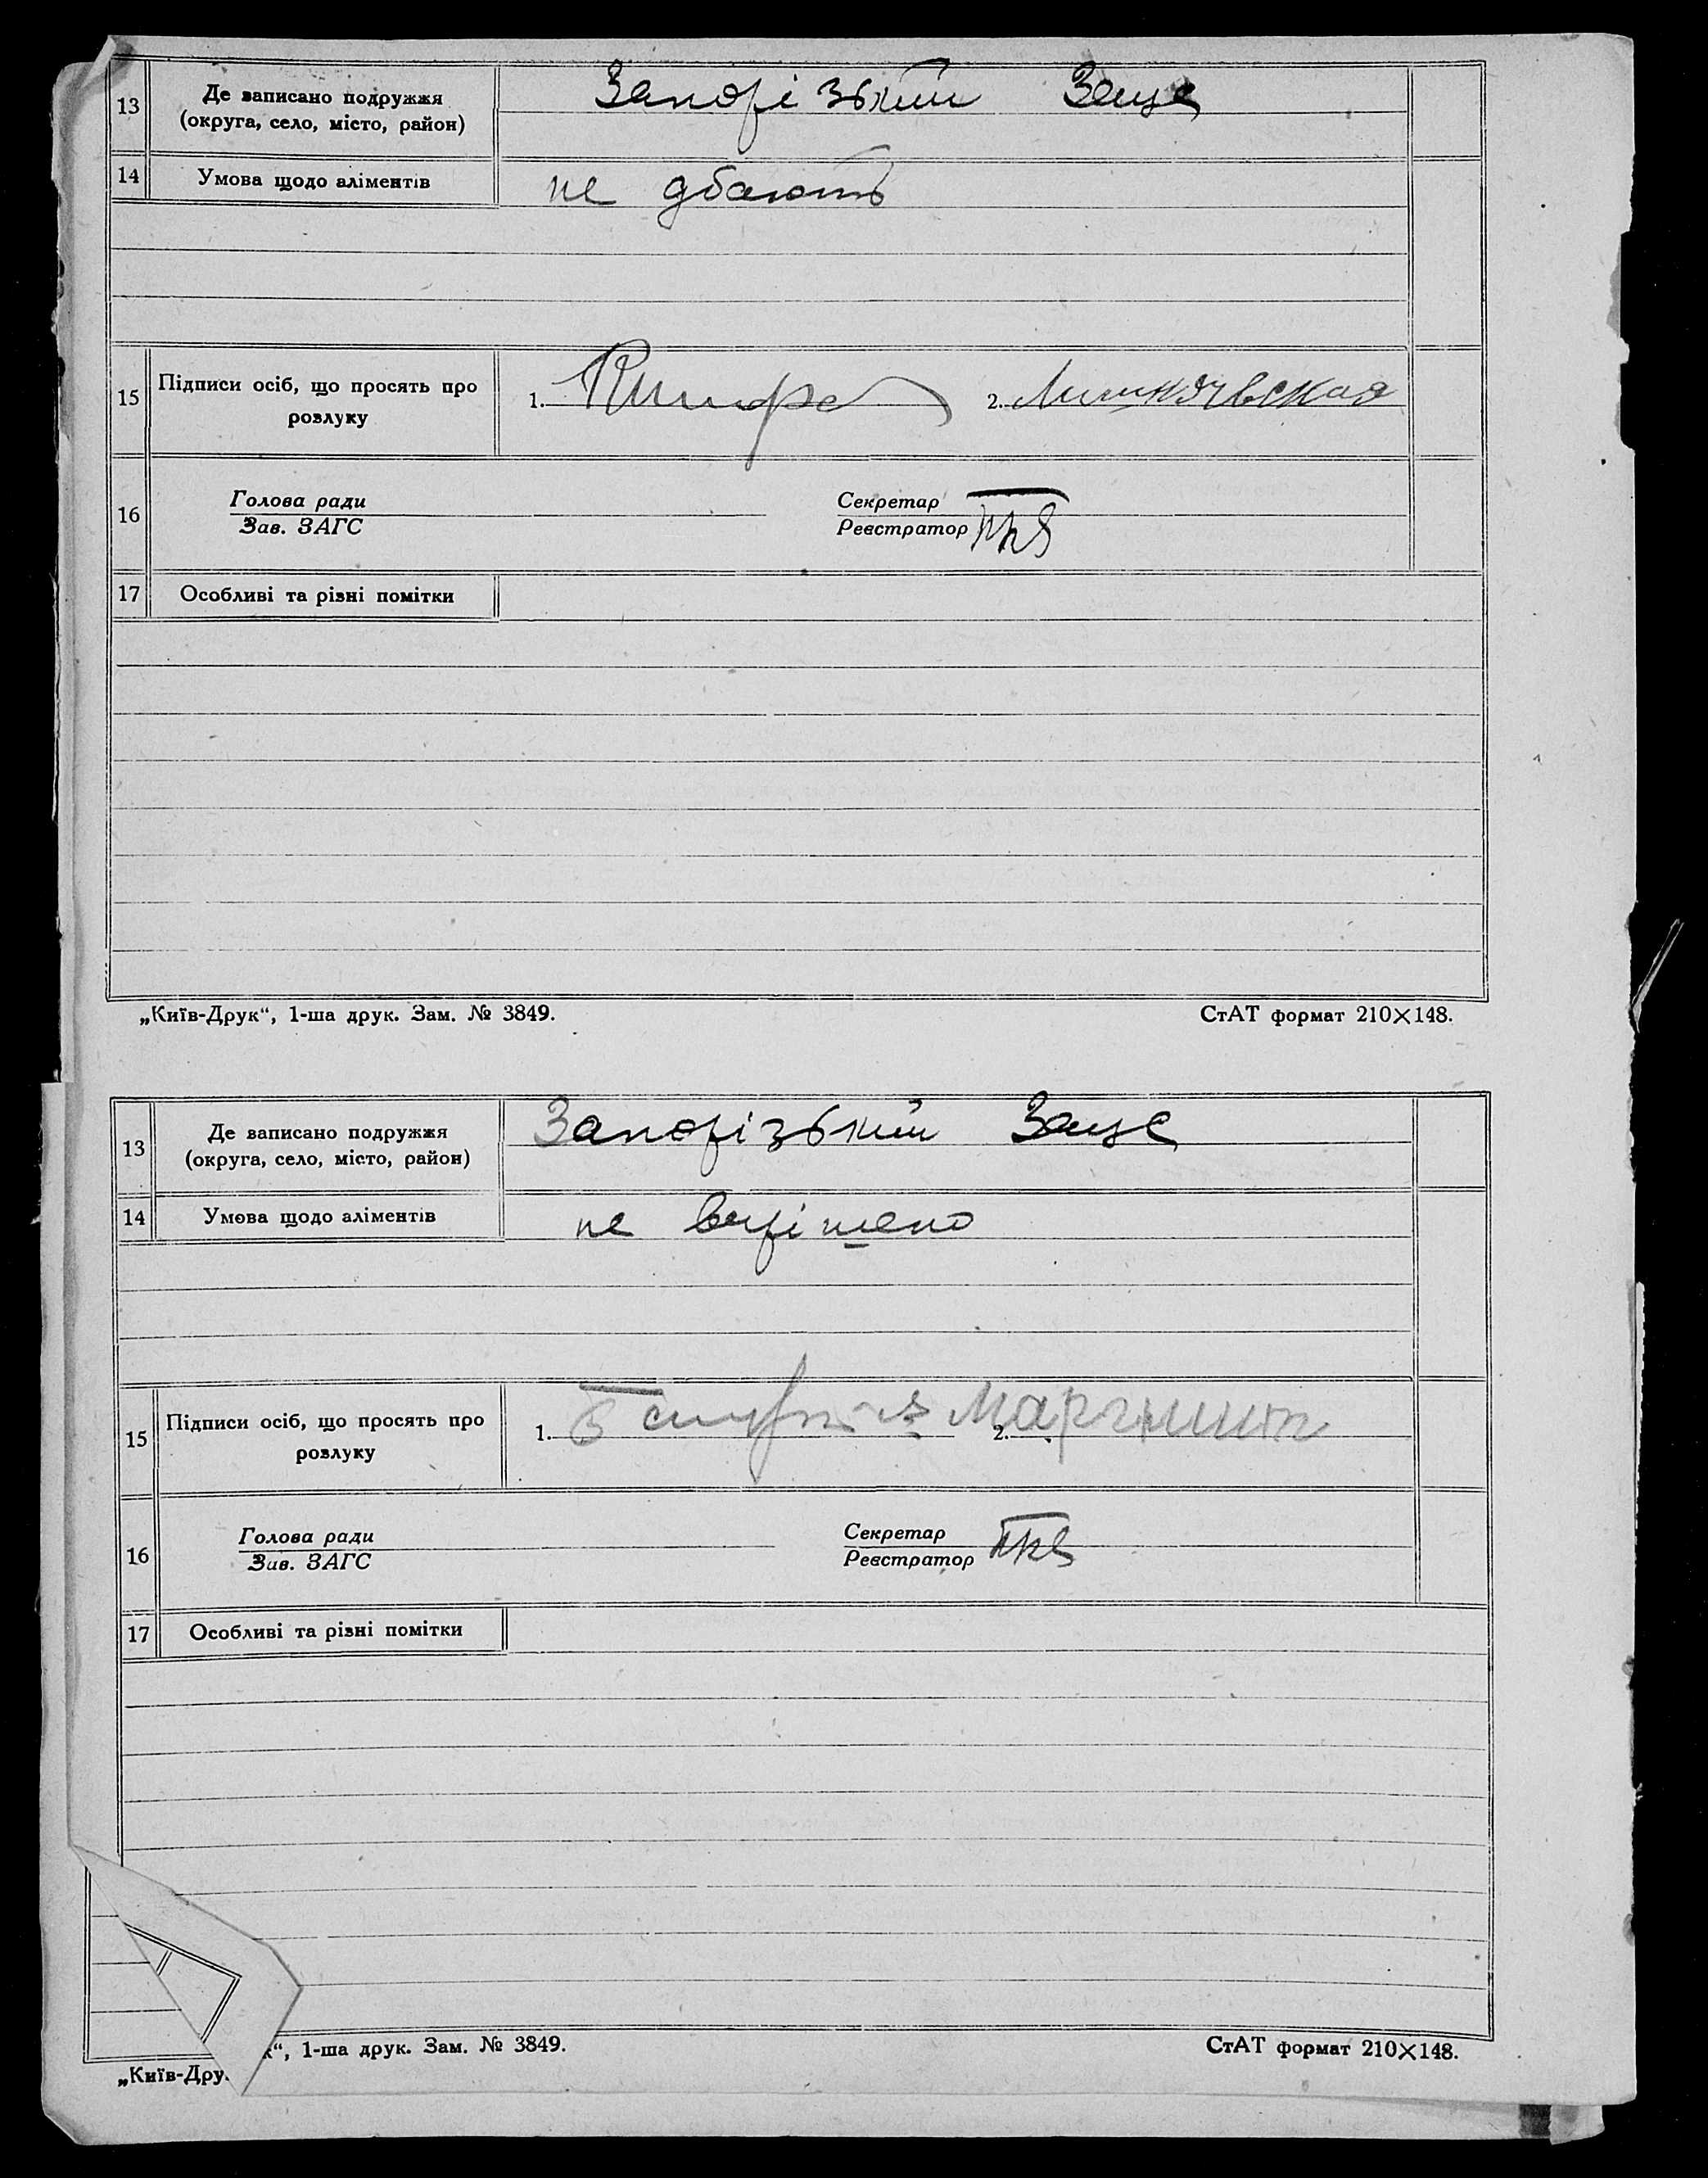 13 Де записано подружжя
(округа, село, місто, район)
Запорізький Загс
14 Умова щодо аліментів
не дбають
15 Підписи осіб, що просять про
розлуку
1. 2.
16 Голова ради
Зав. ЗАГС
Секретар
Реєстратор
17 Особливі та різні помітки
„Київ-Друк“, 1-ша друк. Зам. № 3849. СтАТ формат 210×148.
13 Де записано подружжя
(округа, село, місто, район)
Запорізький Загс
14 Умова щодо аліментів
не вирішено
15 Підписи осіб, що просять про
розлуку
1. 2.
16 Голова ради
Зав. ЗАГС
Секретар
Реєстратор
17 Особливі та різні помітки
к“, 1-ша друк. Зам. № 3849. СтАТ формат 210×148.
„Київ-Дру